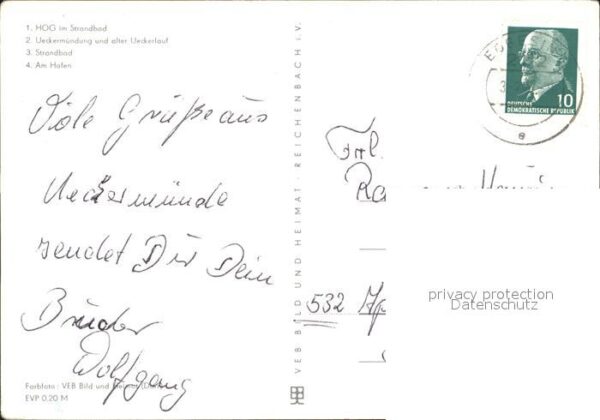 1. HOG im Strandbad
2. Ueckermündung und alter Ueckerlauf
3. Strandbad
4. Am Hafen
Viele Grüße aus
Ueckermünde
sendet Dir Dein
Bruder
Wolfgang
Farbfoto: VEB Bild und Heimat
EVP 0,20 M
VEB BILD UND HEIMAT · REICHENBACH i. V.
10
DEUTSCHE
DEMOKRATISCHE REPUBLIK
e
Frl.
532
privacy protection
Datenschutz